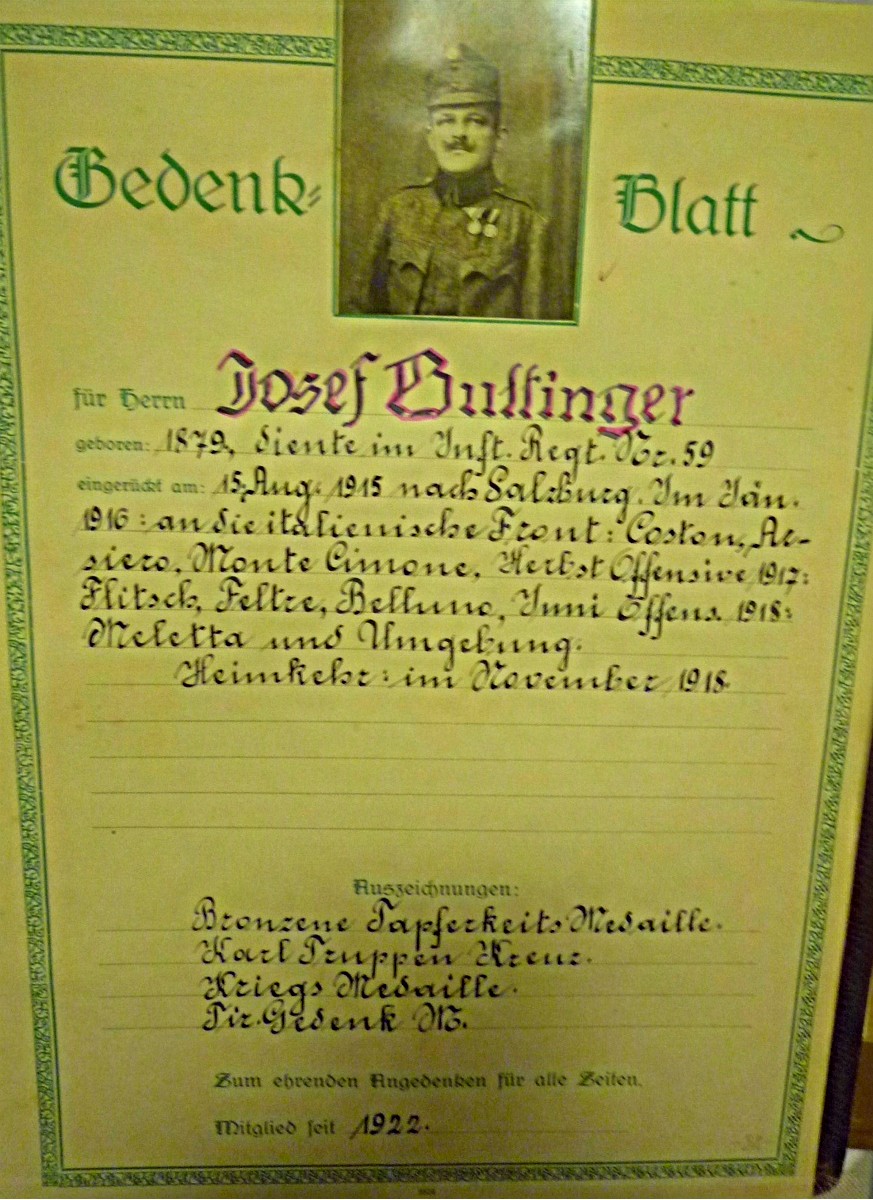 Gedenk- Blatt
für Herrn Josef Bullinger
geboren: 1879, diente im Inft. Regt. Nr. 59
eingerückt am: 15. Aug. 1915 nach Salzburg. Im Jän.
1916: an die italienische Front: Coston, Ar-
siero, Monte Cimone, Herbst Offensive 1917:
Flitsch, Feltre, Belluno, Juni Offens. 1918:
Meletta und Umgebung.
Heimkehr: im November 1918.
Auszeichnungen:
Bronzene Tapferkeits Medaille.
Karl Truppen Kreuz.
Kriegs Medaille.
Tir. Gedenk M.
Zum ehrenden Angedenken für alle Zeiten.
Mitglied seit 1922.